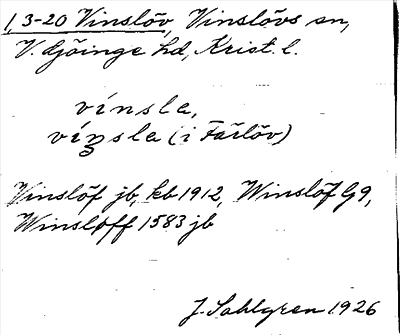 1, 3-20 Vinslöv, Vinslövs sn,
V. Göinge hd, Krist. l.
vínsle,
vínsle (i Färlöv)
Vinslöf jb, kb 1912, Winslöf G9,
Winsløff 1583 jb
J. Sahlgren 1926